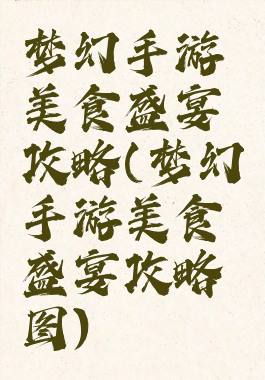 梦幻手游
美食盛宴
攻略(梦幻
手游美食
盛宴攻略
图)